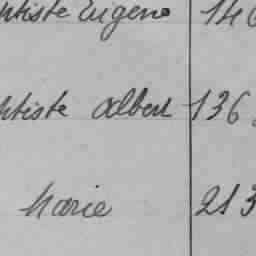 ptiste Eugene 146
ptiste Albert 136
Marie 213